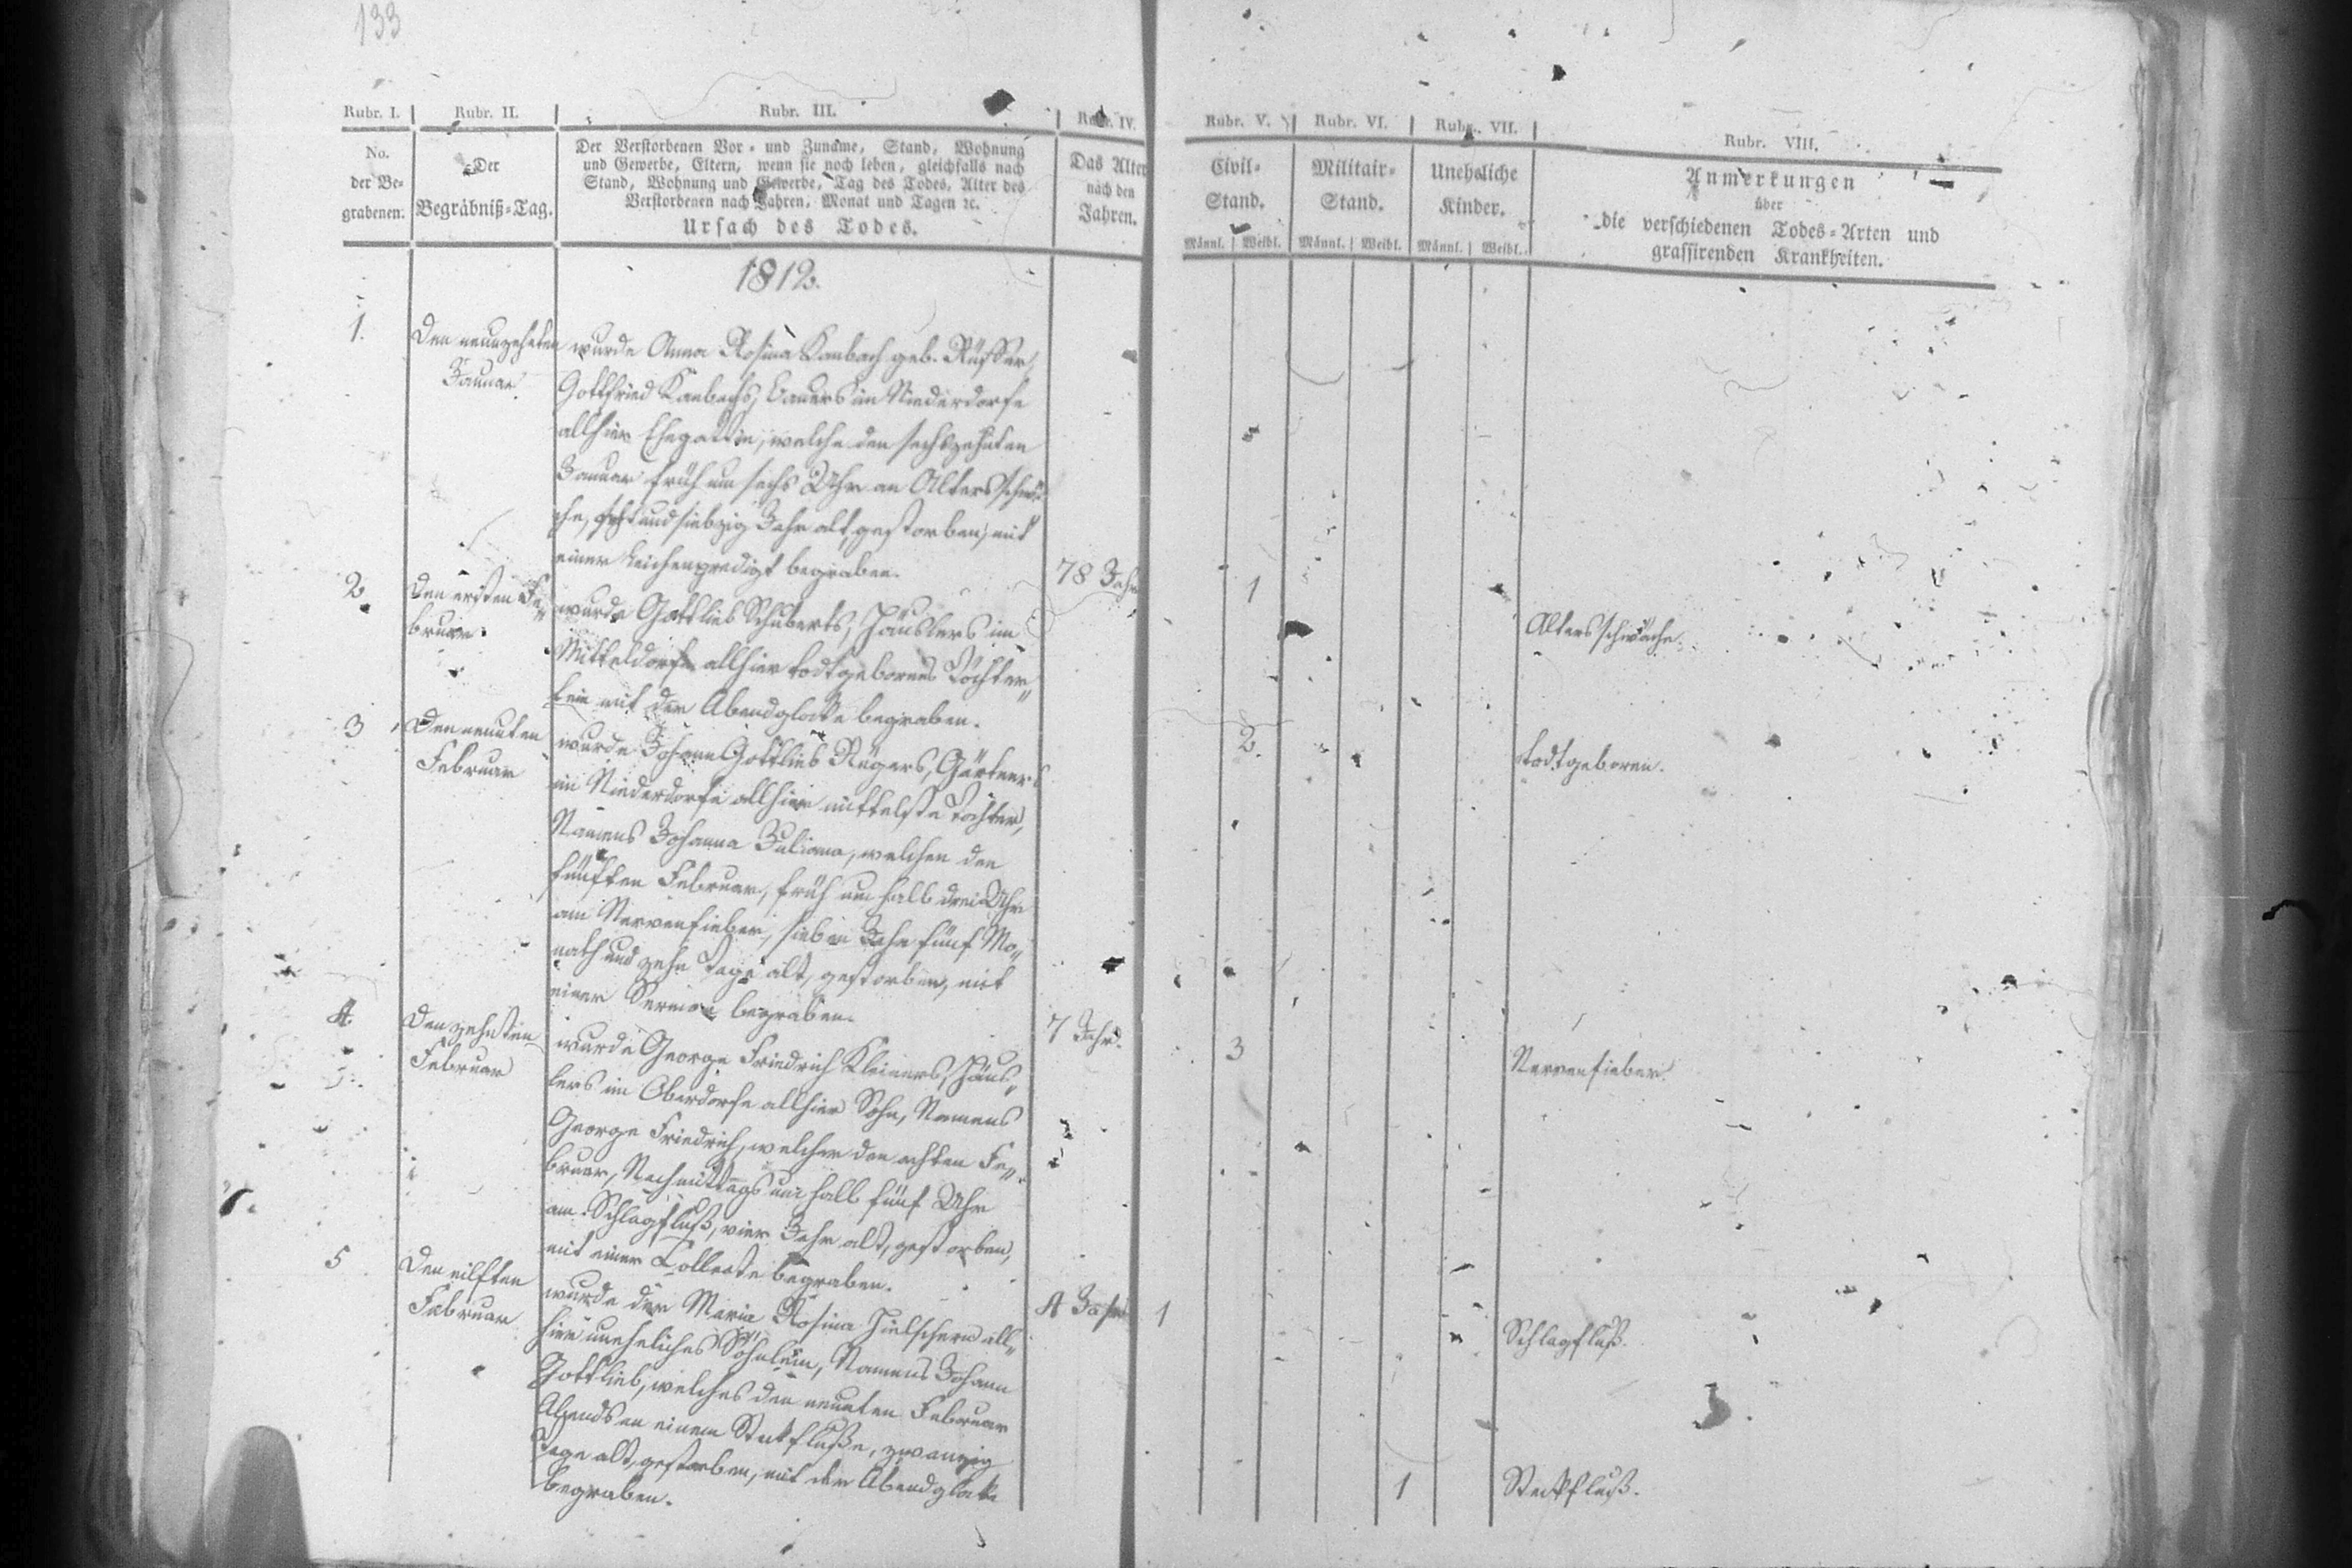 133
Rubr. I.
Rubr. II.
Rubr. III.
Rubr. IV.
Rubr. V.
Rubr. VI.
Rubr. VII.
Rubr. VIII.
No.
der Be-
grabenen.
Der
Begräbniß-Tag.
Der Verstorbenen Vor- und Zuname, Stand, Wohnung
und Gewerbe, Eltern, wenn sie noch leben, gleichfalls nach
Stand, Wohnung und Gewerbe, Tag des Todes, Alter des
Verstorbenen nach Jahren, Monat und Tagen ꝛc.
Ursach des Todes.
Das Alter
nach den
Jahren.
Civil-
Stand.
Männl. Weibl.
Militair-
Stand.
Männl. Weibl.
Unehliche
Kinder.
Männl. Weibl.
Anmerkungen
über
die verschiedenen Todes-Arten und
grassirenden Krankheiten.
1812.
1.
Den neunzehnten
Januar
wurde Anna Rosina Kambach geb.
Gottfried Kambachs, Bauers im Niederdorfe
allhier Ehegattin, welche den sechszehnten
Januar früh um sechs Uhr an Altersschwä-
che, acht und siebzig Jahr alt gestorben, mit
einer Leichenpredigt begraben.
78 Jahr
1
Altersschwäche.
2
Den ersten Fe-
bruar
wurde Gottlieb Schuberts, Häuslers im
Mitteldorfe allhier todtgebornes Töchter-
lein mit der Abendglocke begraben.
2.
todtgeboren.
3
Den neunten
Februar
wurde Johann Gottlieb Rügers, Gärtners
im Niederdorfe allhier mittelste Tochter,
Namens Johanna Juliana, welche den
fünften Februar, früh um halb drei Uhr
am Nervenfieber, sieben Jahr fünf Mo-
nath und zehn Tage alt, gestorben, mit
einer Sermon begraben.
7 Jahr.
3
Nervenfieber.
4.
Den zehnten
Februar
wurde George Friedrich Kleiners, Häus-
lers im Oberdorfe allhier Sohn, Namens
George Friedrich, welcher den achten Fe-
bruar, Nachmittags um halb fünf Uhr
am Schlagfluß, vier Jahr alt, gestorben,
mit einer Collecte begraben.
4 Jahr
1
Schlagfluß.
5
Den eilften
Februar
wurde der Maria Rosina Hielschern all-
hier uneheliches Söhnlein, Namens Johann
Gottlieb, welches den neunten Februar
Abends an einem Steckfluße, zwanzig
Tage alt, gestorben, mit der Abendglocke
begraben.
1
Steckfluß.